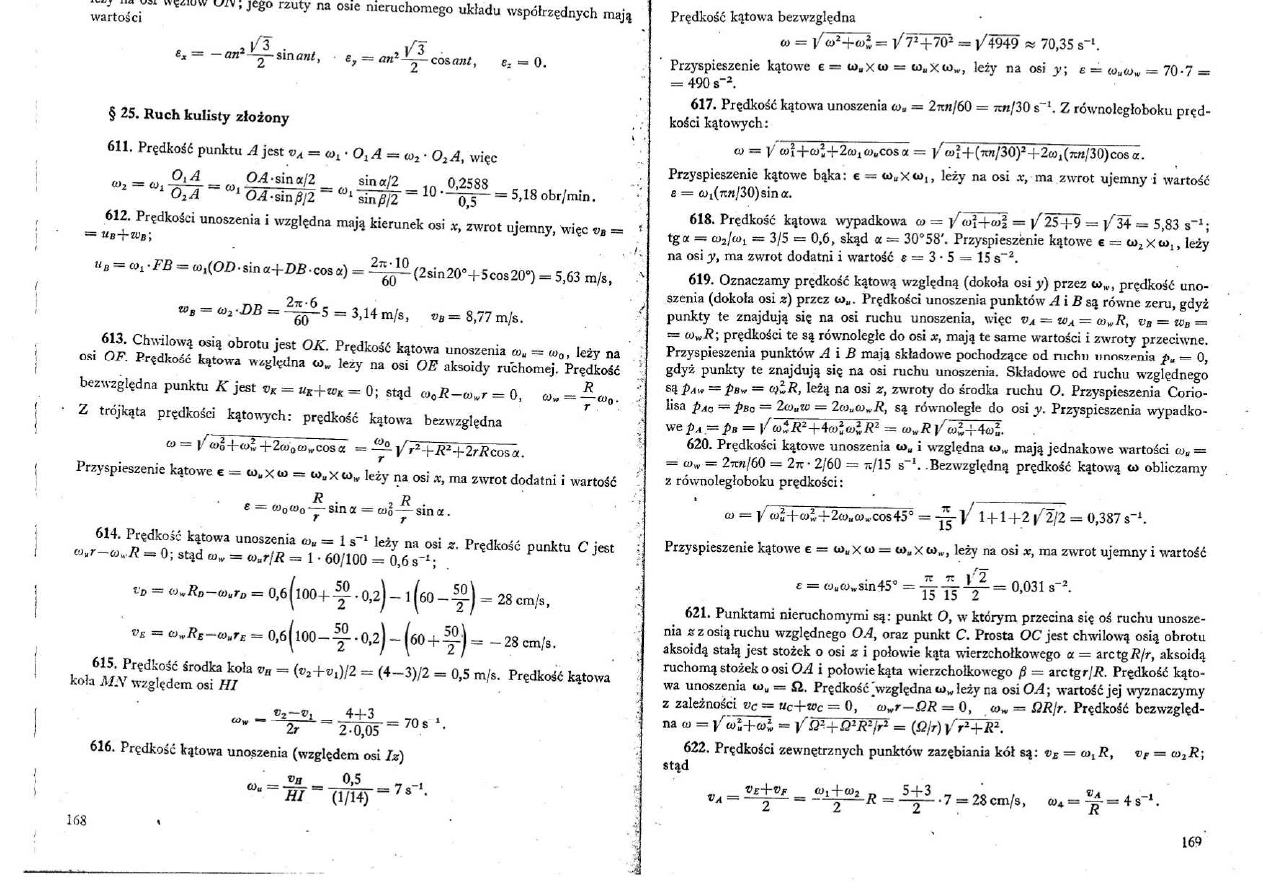 węzłów ON; jego rzuty na osie nieruchomego układu współrzędnych mają
wartości
εₓ = −an² √3/2 sin ant, εᵧ = an² √3/2 cos ant, ε_z = 0.
§ 25. Ruch kulisty złożony
611. Prędkość punktu A jest v_A = ω₁ · O₁A = ω₂ · O₂A, więc
ω₂ = ω₁ O₁A/O₂A = ω₁ OA·sin α/2 / OA·sin β/2 = ω₁ sin α/2 / sin β/2 = 10 · 0,2588/0,5 = 5,18 obr/min.
612. Prędkości unoszenia i względna mają kierunek osi x, zwrot ujemny, więc v_B =
= u_B+w_B;
u_B = ω₁·FB = ω₁(OD·sin α+DB·cos α) = 2π·10/60 (2sin20°+5cos20°) = 5,63 m/s,
w_B = ω₂·DB = 2π·6/60 5 = 3,14 m/s, v_B = 8,77 m/s.
613. Chwilową osią obrotu jest OK. Prędkość kątowa unoszenia ω_u = ω₀, leży na
osi OF. Prędkość kątowa względna ω_w leży na osi OE aksoidy ruchomej. Prędkość
bezwzględna punktu K jest v_K = u_K+w_K = 0; stąd ω₀R−ω_w r = 0, ω_w = R/r ω₀.
Z trójkąta prędkości kątowych: prędkość kątowa bezwzględna
ω = √(ω₀²+ω_w²+2ω₀ω_w cos α) = ω₀/r √(r²+R²+2rRcos α).
Przyspieszenie kątowe ε = ω_u×ω = ω_u×ω_w leży na osi x, ma zwrot dodatni i wartość
ε = ω₀ω₀ R/r sin α = ω₀² R/r sin α.
614. Prędkość kątowa unoszenia ω_u = 1 s⁻¹ leży na osi z. Prędkość punktu C jest
ω_u r−ω_w R = 0; stąd ω_w = ω_u r/R = 1 · 60/100 = 0,6 s⁻¹;
v_D = ω_w R_D−ω_u r_D = 0,6(100+ 50/2 · 0,2)−1(60− 50/2) = 28 cm/s,
v_E = ω_w R_E−ω_u r_E = 0,6(100− 50/2 · 0,2)−(60+ 50/2) = −28 cm/s.
615. Prędkość środka koła v_H = (v₂+v₁)/2 = (4−3)/2 = 0,5 m/s. Prędkość kątowa
koła MN względem osi HI
ω_w = v₂−v₁/2r = 4+3/2·0,05 = 70 s⁻¹.
616. Prędkość kątowa unoszenia (względem osi Iz)
ω_u = v_H/HI = 0,5/(1/14) = 7 s⁻¹.
168
Prędkość kątowa bezwzględna
ω = √(ω²+ω_w²) = √(7²+70²) = √4949 ≈ 70,35 s⁻¹.
Przyspieszenie kątowe ε = ω_u×ω = ω_u×ω_w, leży na osi y; ε = ω_uω_w = 70·7 =
= 490 s⁻².
617. Prędkość kątowa unoszenia ω_u = 2πn/60 = πn/30 s⁻¹. Z równoległoboku pręd-
kości kątowych:
ω = √(ω₁²+ω_u²+2ω₁ω_u cos α) = √(ω₁²+(πn/30)²+2ω₁(πn/30)cos α).
Przyspieszenie kątowe bąka: ε = ω_u×ω₁, leży na osi x, ma zwrot ujemny i wartość
ε = ω₁(πn/30)sin α.
618. Prędkość kątowa wypadkowa ω = √(ω₁²+ω₂²) = √(25+9) = √34 = 5,83 s⁻¹;
tg α = ω₂/ω₁ = 3/5 = 0,6, skąd α = 30°58′. Przyspieszenie kątowe ε = ω₂×ω₁, leży
na osi y, ma zwrot dodatni i wartość ε = 3 · 5 = 15 s⁻².
619. Oznaczamy prędkość kątową względną (dokoła osi y) przez ω_w, prędkość uno-
szenia (dokoła osi z) przez ω_u. Prędkości unoszenia punktów A i B są równe zeru, gdyż
punkty te znajdują się na osi ruchu unoszenia, więc v_A = w_A = ω_w R, v_B = w_B =
= ω_w R; prędkości te są równoległe do osi x, mają te same wartości i zwroty przeciwne.
Przyspieszenia punktów A i B mają składowe pochodzące od ruchu unoszenia p_u = 0,
gdyż punkty te znajdują się na osi ruchu unoszenia. Składowe od ruchu względnego
są p_Aw = p_Bw = ω_w²R, leżą na osi z, zwroty do środka ruchu O. Przyspieszenia Corio-
lisa p_Ac = p_Bc = 2ω_u w = 2ω_uω_w R, są równoległe do osi y. Przyspieszenia wypadko-
we p_A = p_B = √(ω_w⁴R²+4ω_u²ω_w²R²) = ω_w R√(ω_w²+4ω_u²).
620. Prędkości kątowe unoszenia ω_u i względna ω_w mają jednakowe wartości ω_u =
= ω_w = 2πn/60 = 2π · 2/60 = π/15 s⁻¹. Bezwzględną prędkość kątową ω obliczamy
z równoległoboku prędkości:
ω = √(ω_u²+ω_w²+2ω_uω_w cos45°) = π/15 √(1+1+2√2/2) = 0,387 s⁻¹.
Przyspieszenie kątowe ε = ω_u×ω = ω_u×ω_w, leży na osi x, ma zwrot ujemny i wartość
ε = ω_uω_w sin45° = π/15 π/15 √2/2 = 0,031 s⁻².
621. Punktami nieruchomymi są: punkt O, w którym przecina się oś ruchu unosze-
nia z z osią ruchu względnego OA, oraz punkt C. Prosta OC jest chwilową osią obrotu
aksoidą stałą jest stożek o osi z i połowie kąta wierzchołkowego α = arctg R/r, aksoidą
ruchomą stożek o osi OA i połowie kąta wierzchołkowego β = arctg r/R. Prędkość kąto-
wa unoszenia ω_u = Ω. Prędkość względna ω_w leży na osi OA; wartość jej wyznaczymy
z zależności v_C = u_C+w_C = 0, ω_w r−ΩR = 0, ω_w = ΩR/r. Prędkość bezwzględ-
na ω = √(ω_u²+ω_w²) = √(Ω²+Ω²R²/r²) = (Ω/r)√(r²+R²).
622. Prędkości zewnętrznych punktów zazębiania kół są: v_E = ω₁R, v_F = ω₂R;
stąd
v_A = v_E+v_F/2 = ω₁+ω₂/2 R = 5+3/2 · 7 = 28 cm/s, ω₄ = v_A/R = 4 s⁻¹.
169